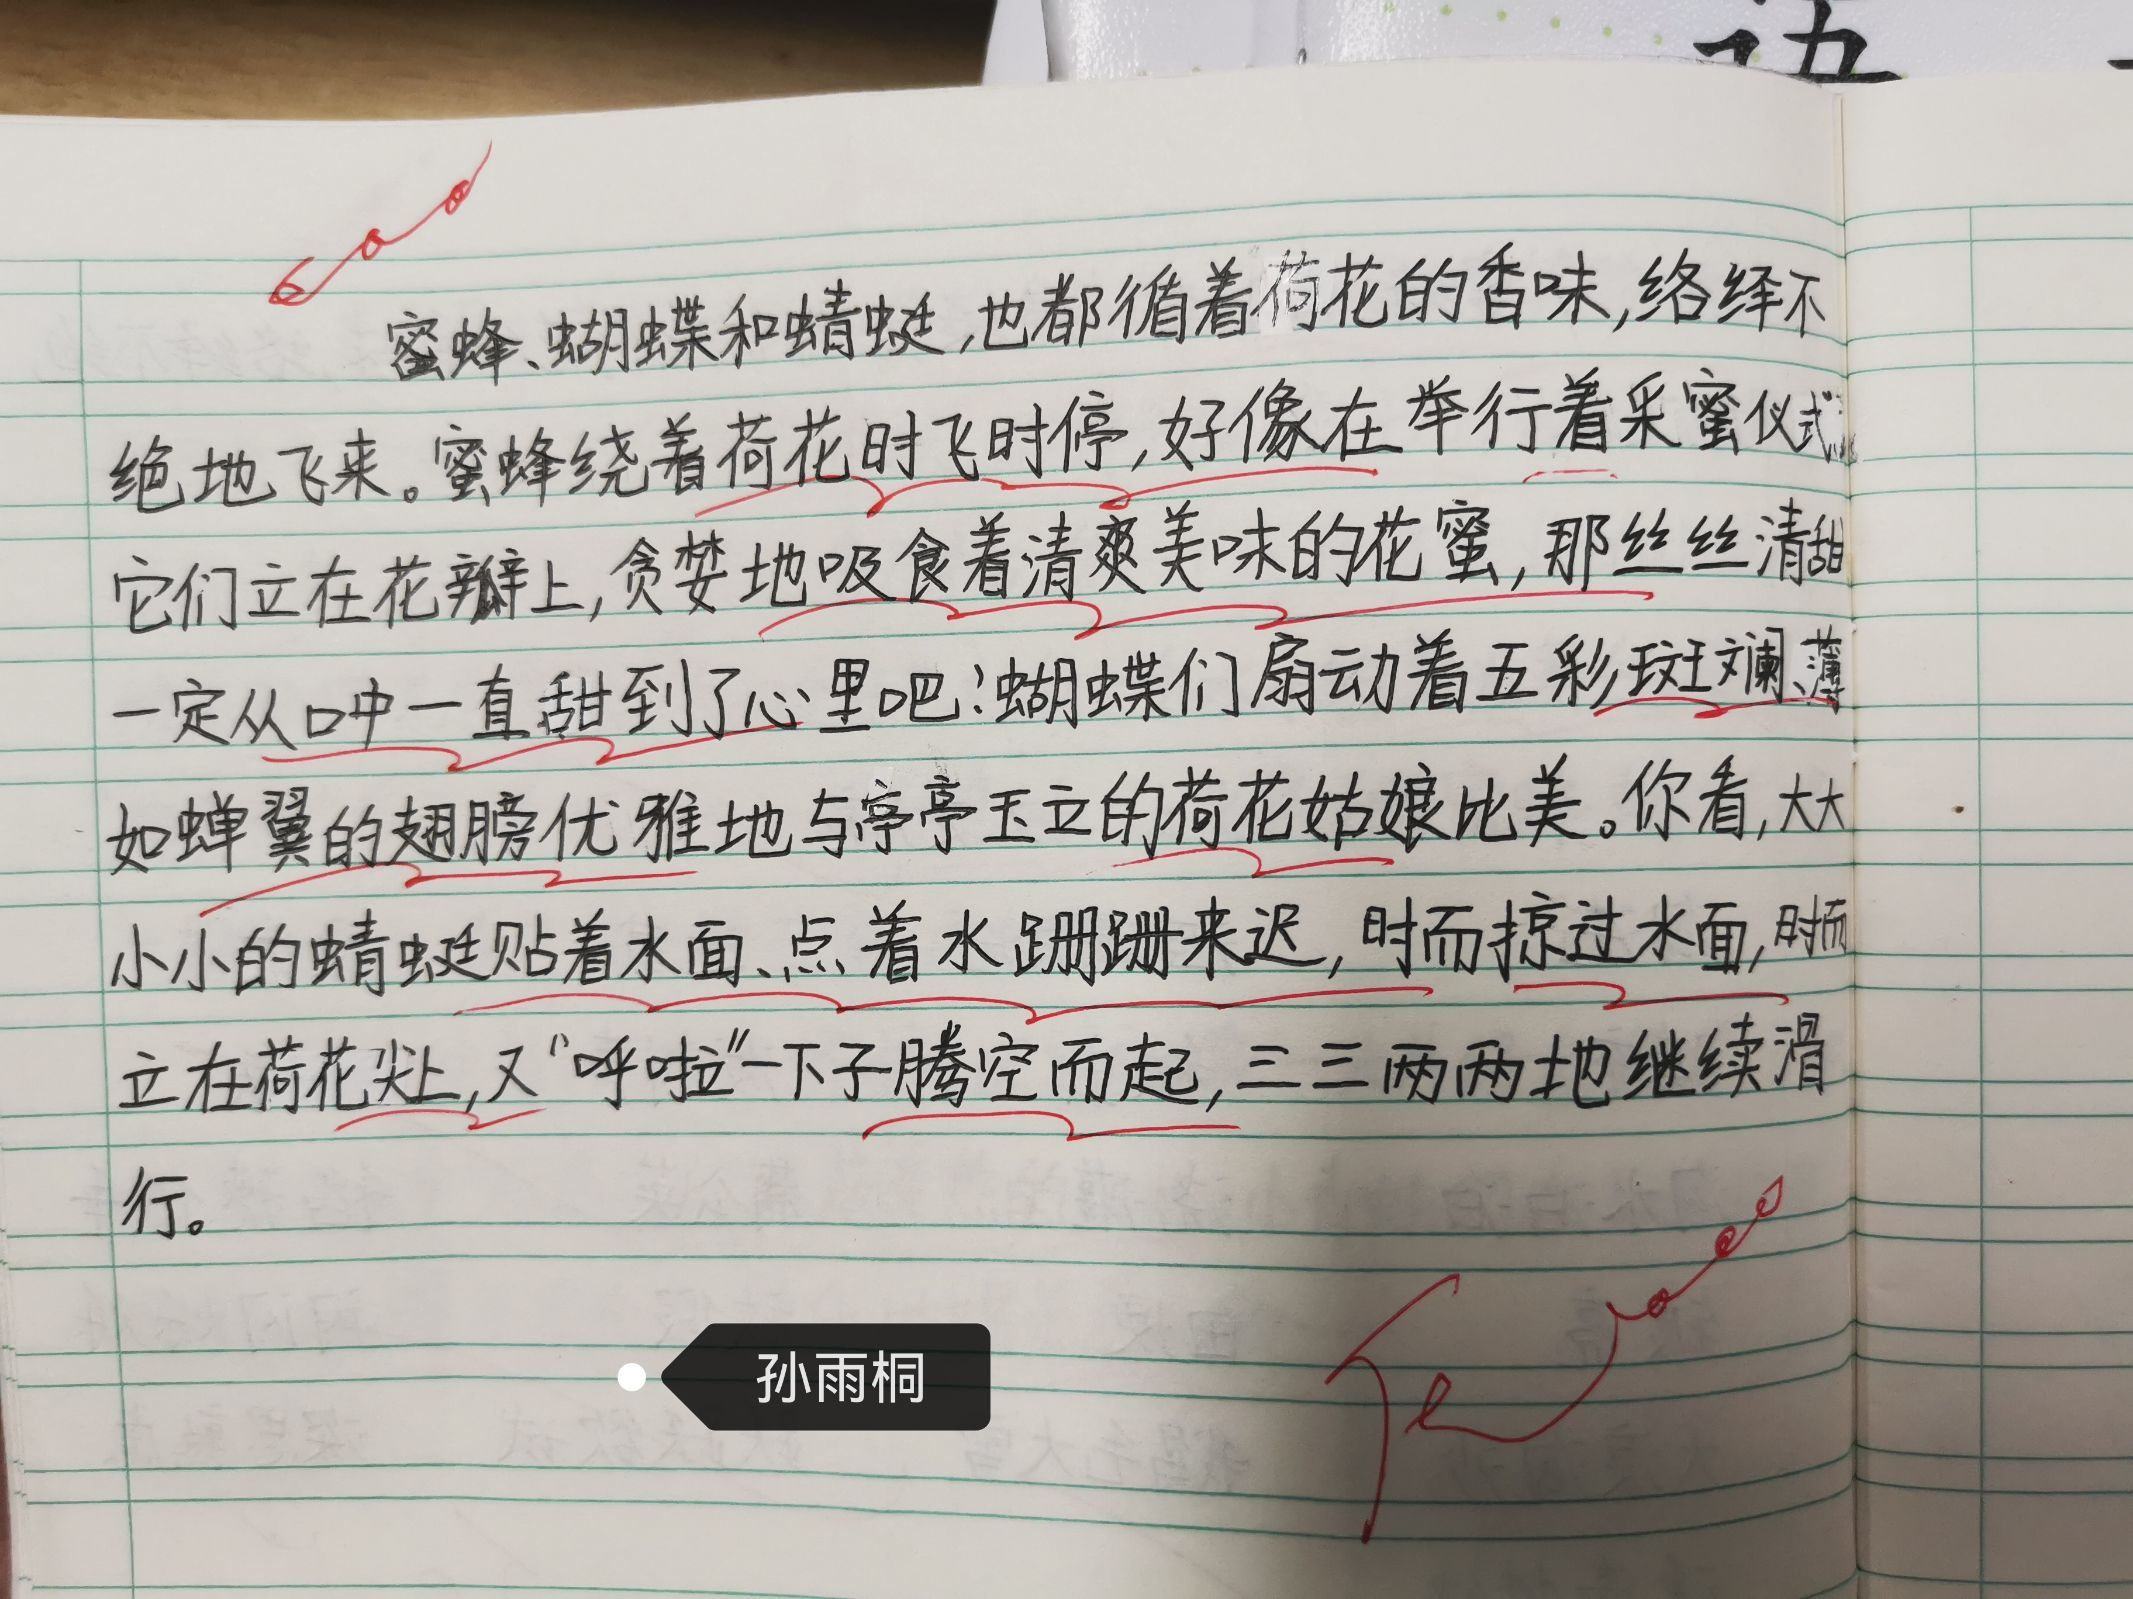 语
蜜蜂、蝴蝶和蜻蜓，也都循着荷花的香味，络绎不
绝地飞来。蜜蜂绕着荷花时飞时停，好像在举行着采蜜仪式
它们立在花瓣上，贪婪地吸食着清爽美味的花蜜，那丝丝清甜
一定从口中一直甜到了心里吧！蝴蝶们扇动着五彩斑斓、薄
如蝉翼的翅膀优雅地与亭亭玉立的荷花姑娘比美。你看，大大
小小的蜻蜓贴着水面、点着水跚跚来迟，时而掠过水面，时而
立在荷花尖上，又“呼啦”一下子腾空而起，三三两两地继续滑
行。
孙雨桐